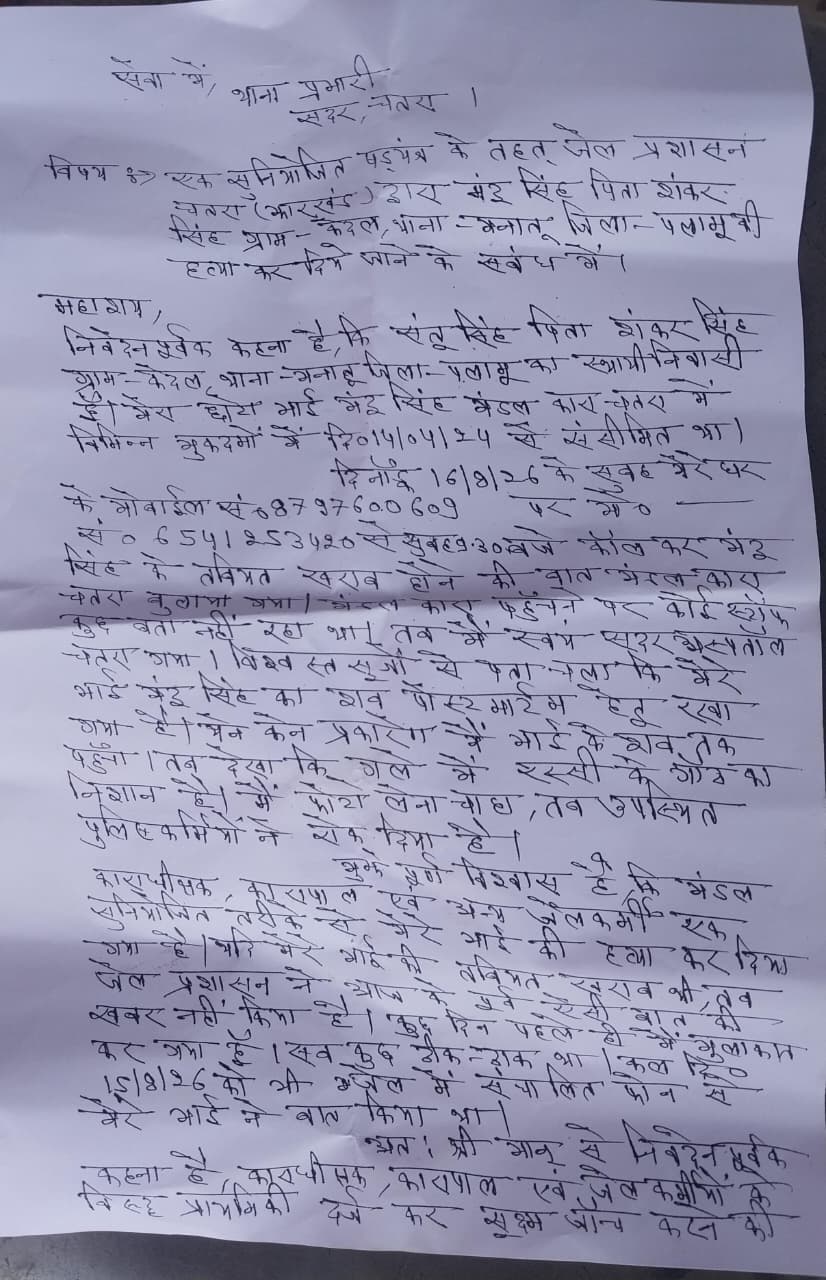 सेवा में, थाना प्रभारी
सदर, चतरा ।
विषय :-> एक सुनियोजित षड्यंत्र के तहत् जेल प्रशासन
चतरा (झारखंड) द्वारा मंटू सिंह पिता शंकर
सिंह ग्राम - केदल, थाना - मनातू, जिला - पलामू की
हत्या कर दिये जाने के संबंध में।
महाशय,
निवेदनपूर्वक कहना है, कि संतू सिंह पिता शंकर सिंह
ग्राम - केदल, थाना - मनातू जिला - पलामू का स्थायी निवासी
हूँ। मेरा छोटा भाई मंटू सिंह मंडल कारा चतरा में
विभिन्न मुकदमों में दि० 14/04/24 से संसीमित था।
दिनाँक 16/8/26 के सुबह मेरे घर
के मोबाईल सं० 8797600609 पर मो०
सं० 6541253420 से सुबह 9:30 बजे कॉल कर मंटू
सिंह के तबियत खराब होने की बात मंडल कारा
चतरा बुलाया गया। मंडल कारा पहुँचने पर कोई स्टॉफ
कुछ बता नहीं रहा था। तब मैं स्वयं सदर अस्पताल
चतरा गया। विश्वस्त सूत्रों से पता चला कि मेरे
भाई मंटू सिंह का शव पोस्टमार्टम हेतू रखा
गया है। येन केन प्रकारेण मैं भाई के शव तक
पहुँचा। तब देखा कि गले में रस्सी के गाँठ का
निशान है। मैं फोटो लेना चाहा, तब उपस्थित
पुलिसकर्मियों ने रोक दिया है।
मुझे पूर्ण विश्वास है कि मंडल के
काराधीक्षक, कारापाल एवं अन्य जेलकर्मी एक
सुनियोजित तरीके से मेरे भाई की हत्या कर दिया
गया है। यदि मेरे भाई की तबियत खराब थी, तब
जेल प्रशासन ने आज के पूर्व ऐसी बात की
खबर नहीं किया है। कुछ दिन पहले ही मैं मुलाकात
कर गया हूँ। सब कुछ ठीक-ठाक था। कल दि०
15/8/26 को भी जेल में संचालित फोन से
मेरे भाई ने बात किया था।
अतः श्री मान् से निवेदन पूर्वक
कहना है, काराधीक्षक, कारापाल एवं जेल कर्मीयों के
विरूद्ध प्राथमिकी दर्ज कर सूक्ष्म जाँच करने की